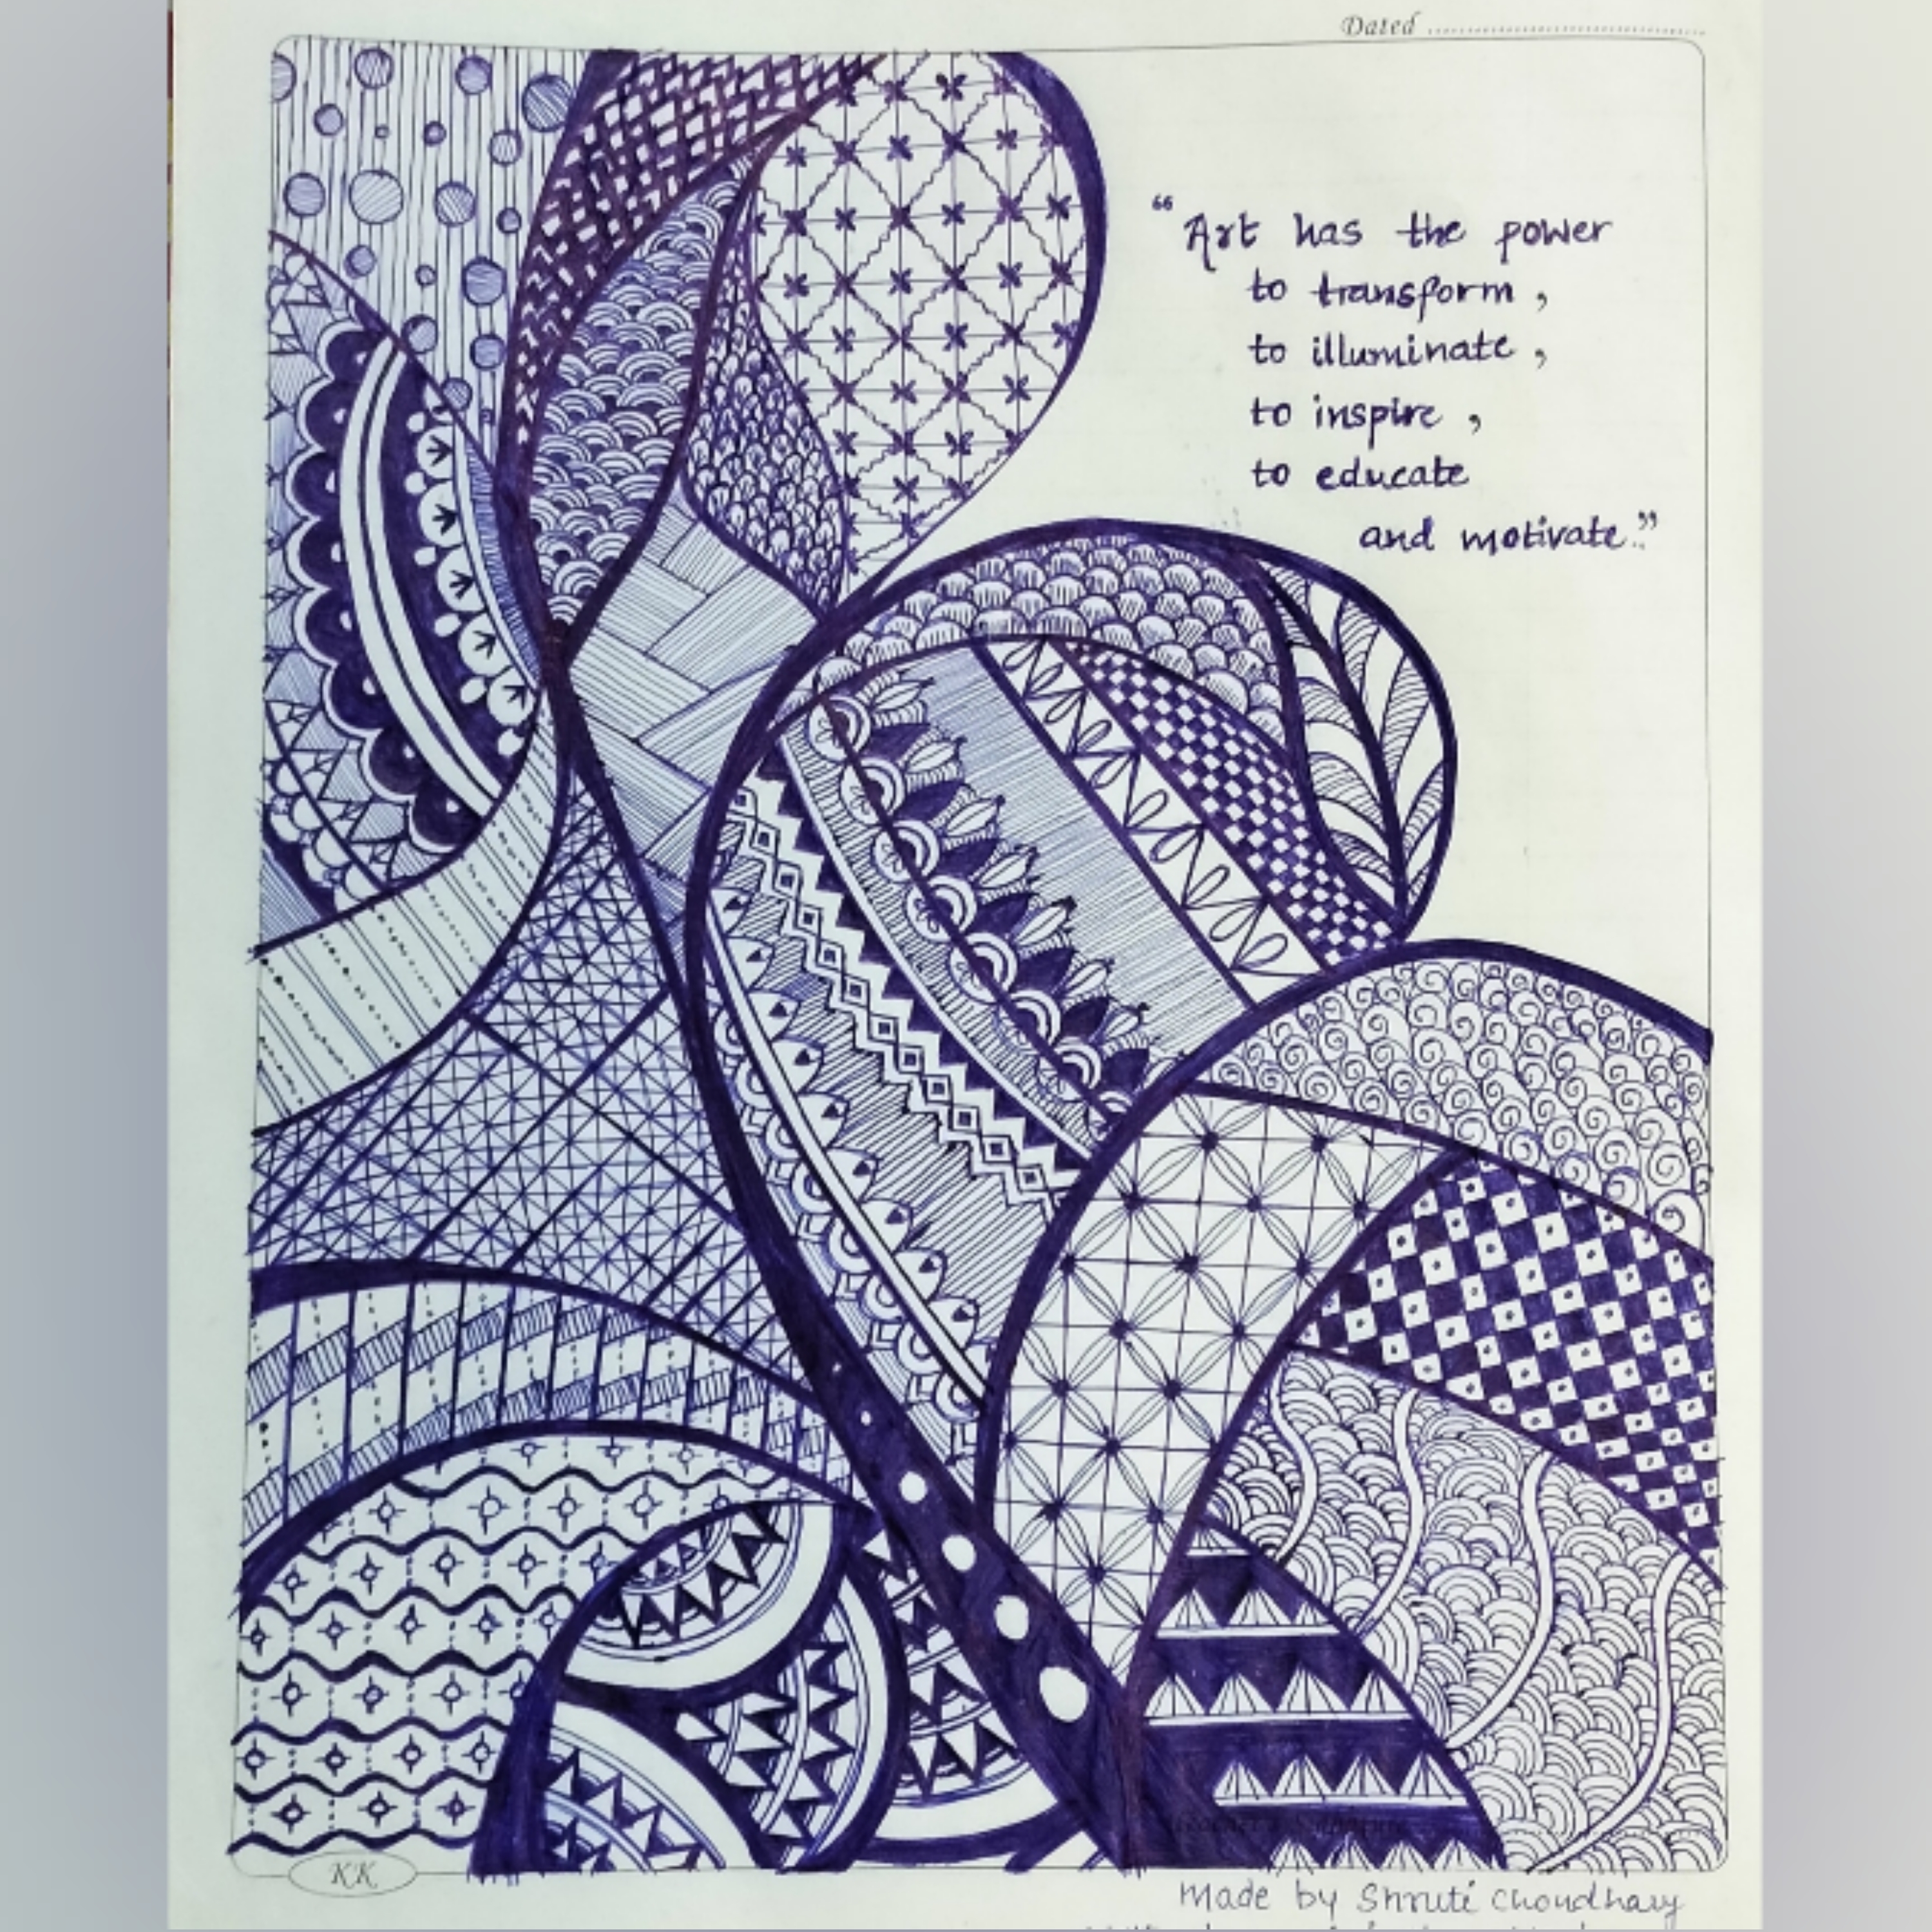 Dated
“Art has the power
to transform,
to illuminate,
to inspire,
to educate
and motivate.”
KK
Made by Shruti Choudhary